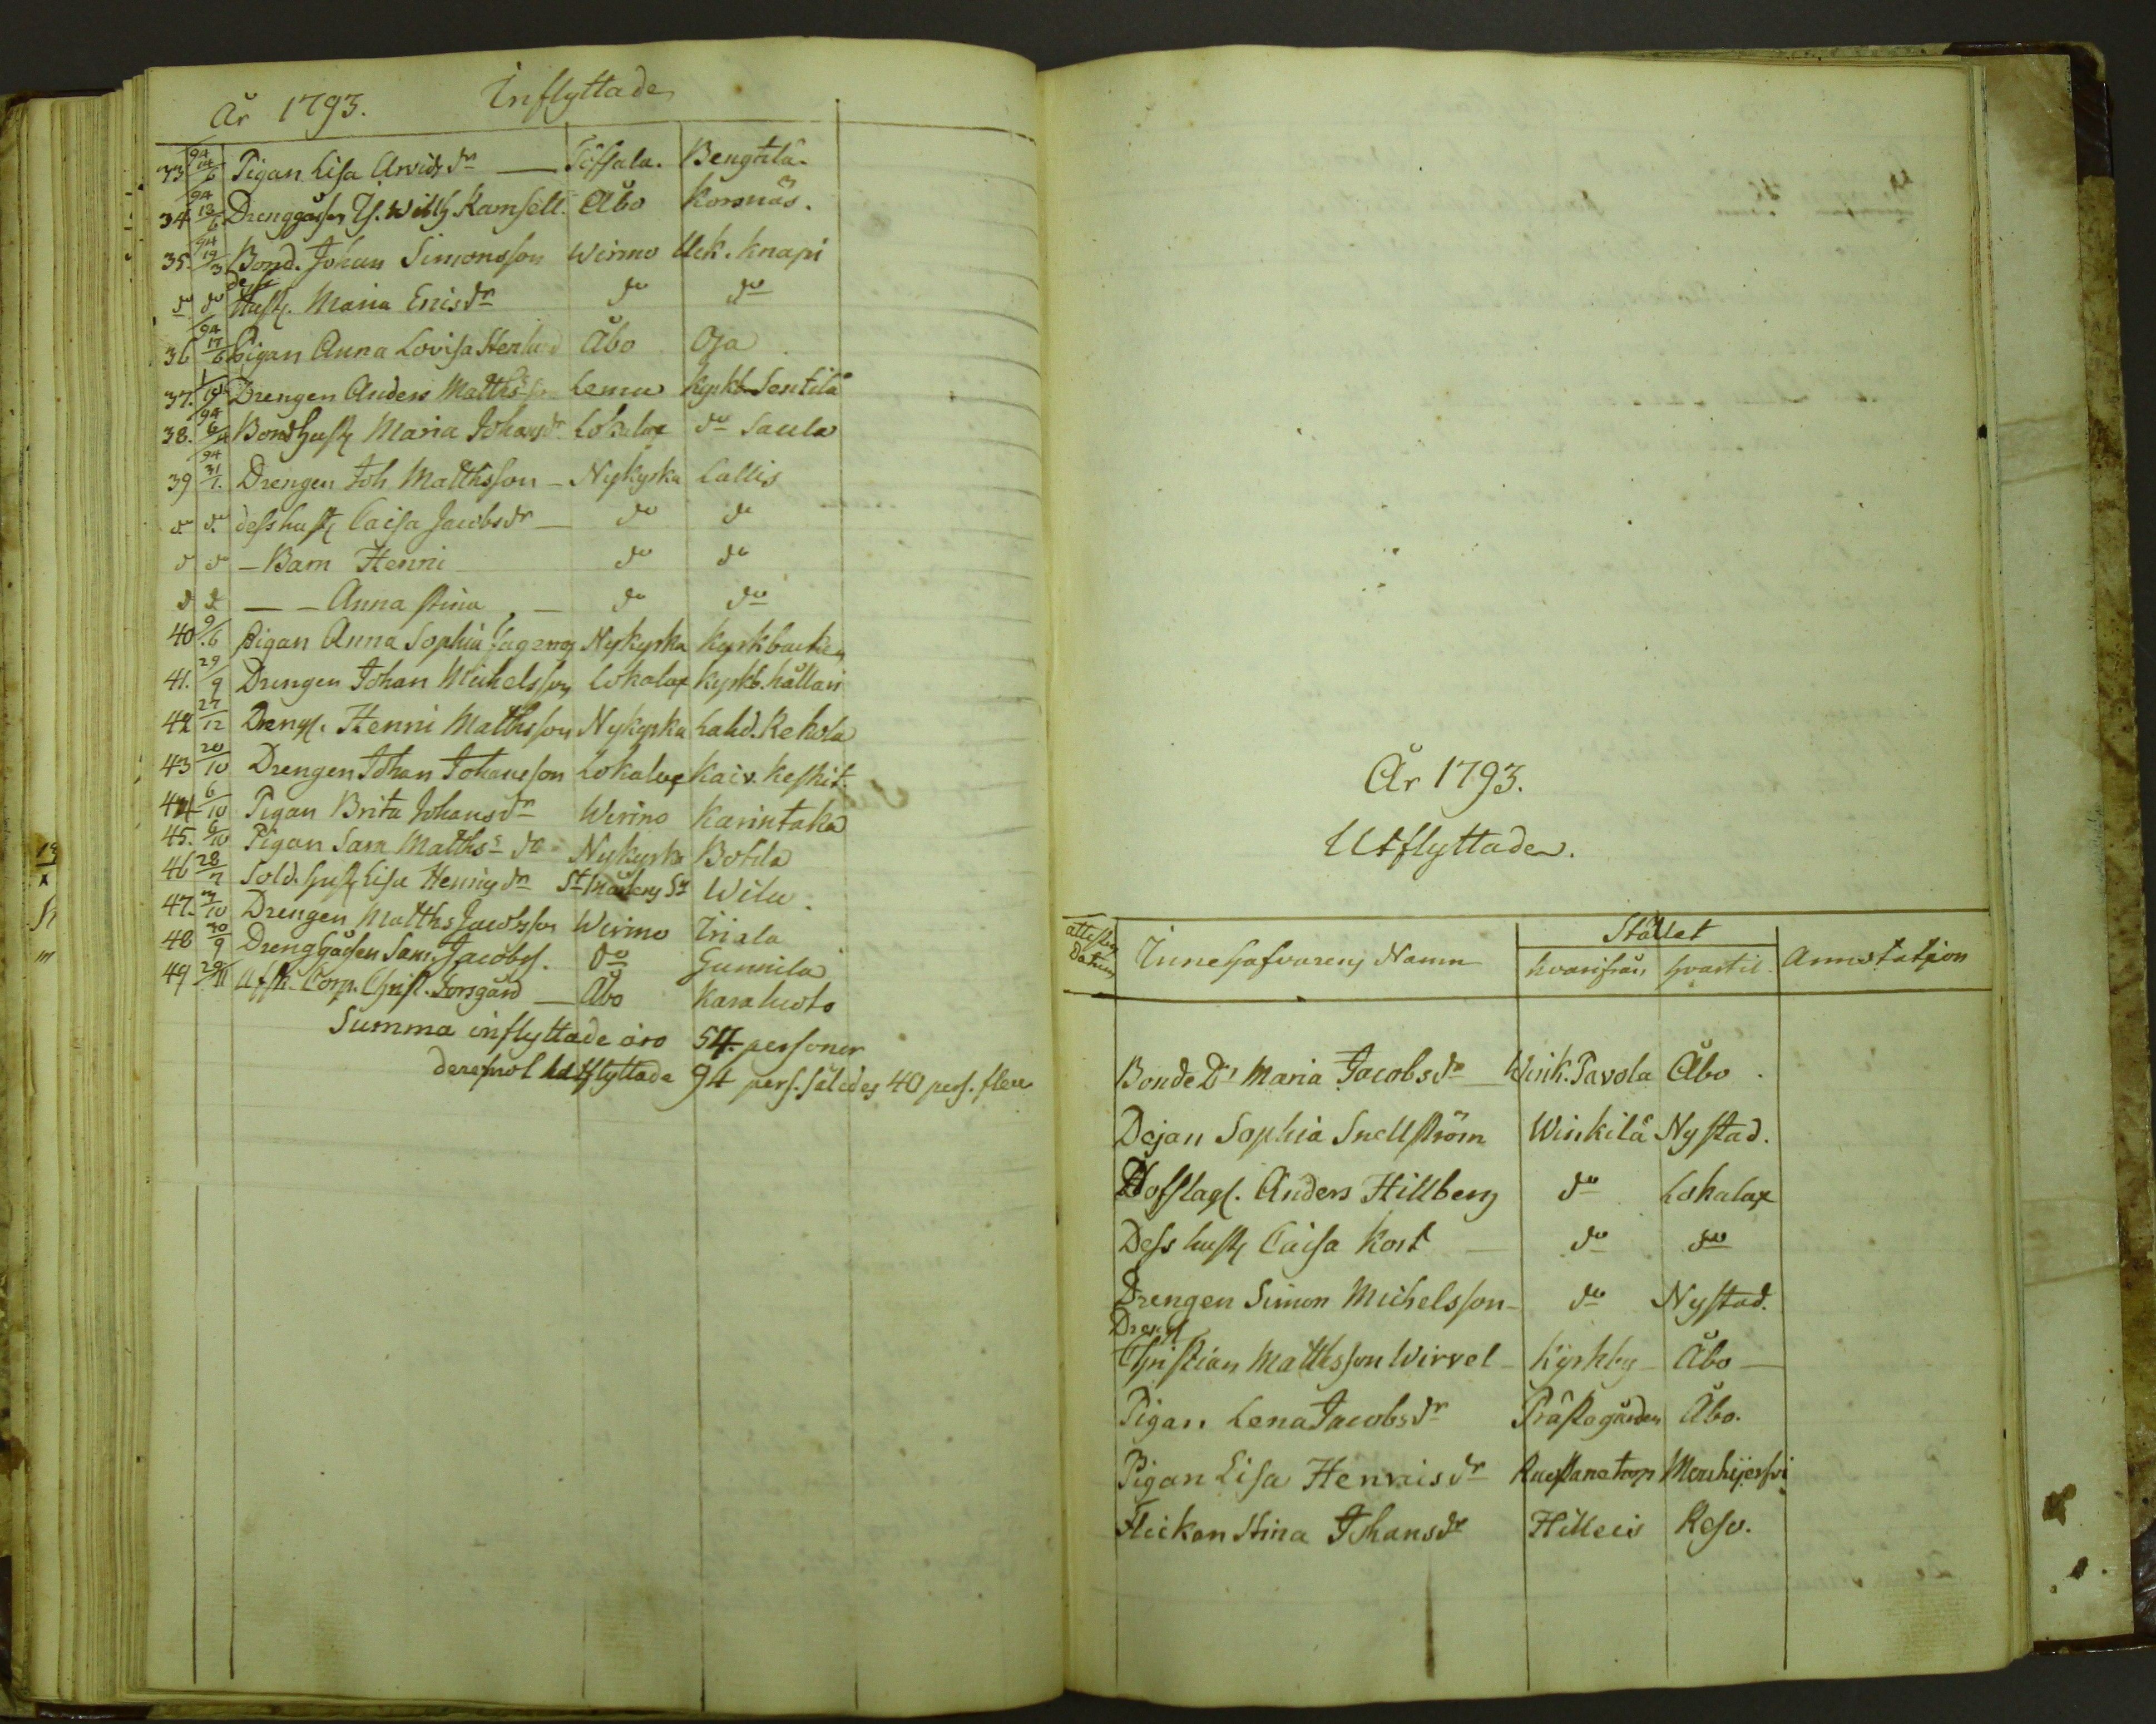 År 1793. Inflyttade
33 94 14/6 Pigan Lisa Arvidsdr — Töffsala. Bengtilä.
34 94 13/6 Drenggåssen Js. Willh Ramsell. Åbo Korsnäs.
35. 94 19/3 Bond. Johan Simonsson Wirmo Uck. Knapi
do do dess Hust. Maria Erisdr do do
36 94 17/6 Pigan Anna Lovisa Åbo Oja
37. 1/10 Drengen Anders Mathsson Lemu Kyrkb. Sentilä
38. 94 6/4 Bondhust Maria Johansdr Lokalax do Saula
39 94 31/1. Drengen Joh Mathsson — Nykyrka Lallis
do do dess hust Caisa Jacobsdr — do do
do do — Barn Henric do do
do do — — Anna Stina — do do
40 9/6 Pigan Anna Sophia Nykyrka Kyrkbacken
41. 29/9 Drengen Johan Michelsson Lokalax Kyrkb. hållari
42 27/12 Dreng. Henric Mathsson Nykyrka Lahd. Rekola
43 20/10 Drengen Johan Johansson Lokalax Kaiv. Keskit.
44 6/10 Pigan Brita Johansdr Wirmo Karintaka
45. 6/10 Pigan Sara Mathsdr Nykyrka Botila
46 28/7 Sold. hust Lisa Henrigsdr St Mårtens Sn Wilu.
47. 3/10 Drengen Matths Jacobsson Wirmo Iriala
48 30/9 Dreng Gåssen Sam. Jacobss. do Gunnila
49 29/11 Afsk. Corp. Christ. Forsgård — Åbo Karaluoto
Summa inflyttade äro 54. personer
deremot utflyttade 94 pers. således 40 pers. flere
År 1793.
Utflyttade.
Attestens datum Innehafvarens Namn Stället Annotation
hvarifrån hvartil.
Bonde Dr Maria Jacobsdr Wink. Pavola Åbo.
Dejan Sophia Snellström Winkilä Nystad.
Hofslag. Anders Hillberg do Lokalax
Dess hust Caisa Kort — do do
Drengen Simon Michelsson — do Nystad.
Dreng
Christian Mathsson Wirvel — Kyrkby — Åbo —
Pigan Lena Jacobsdr Prästegården Åbo.
Pigan Lisa Henricsdr Mouhijerfvi
Flickan Stina Johansdr Hilleis Reso.